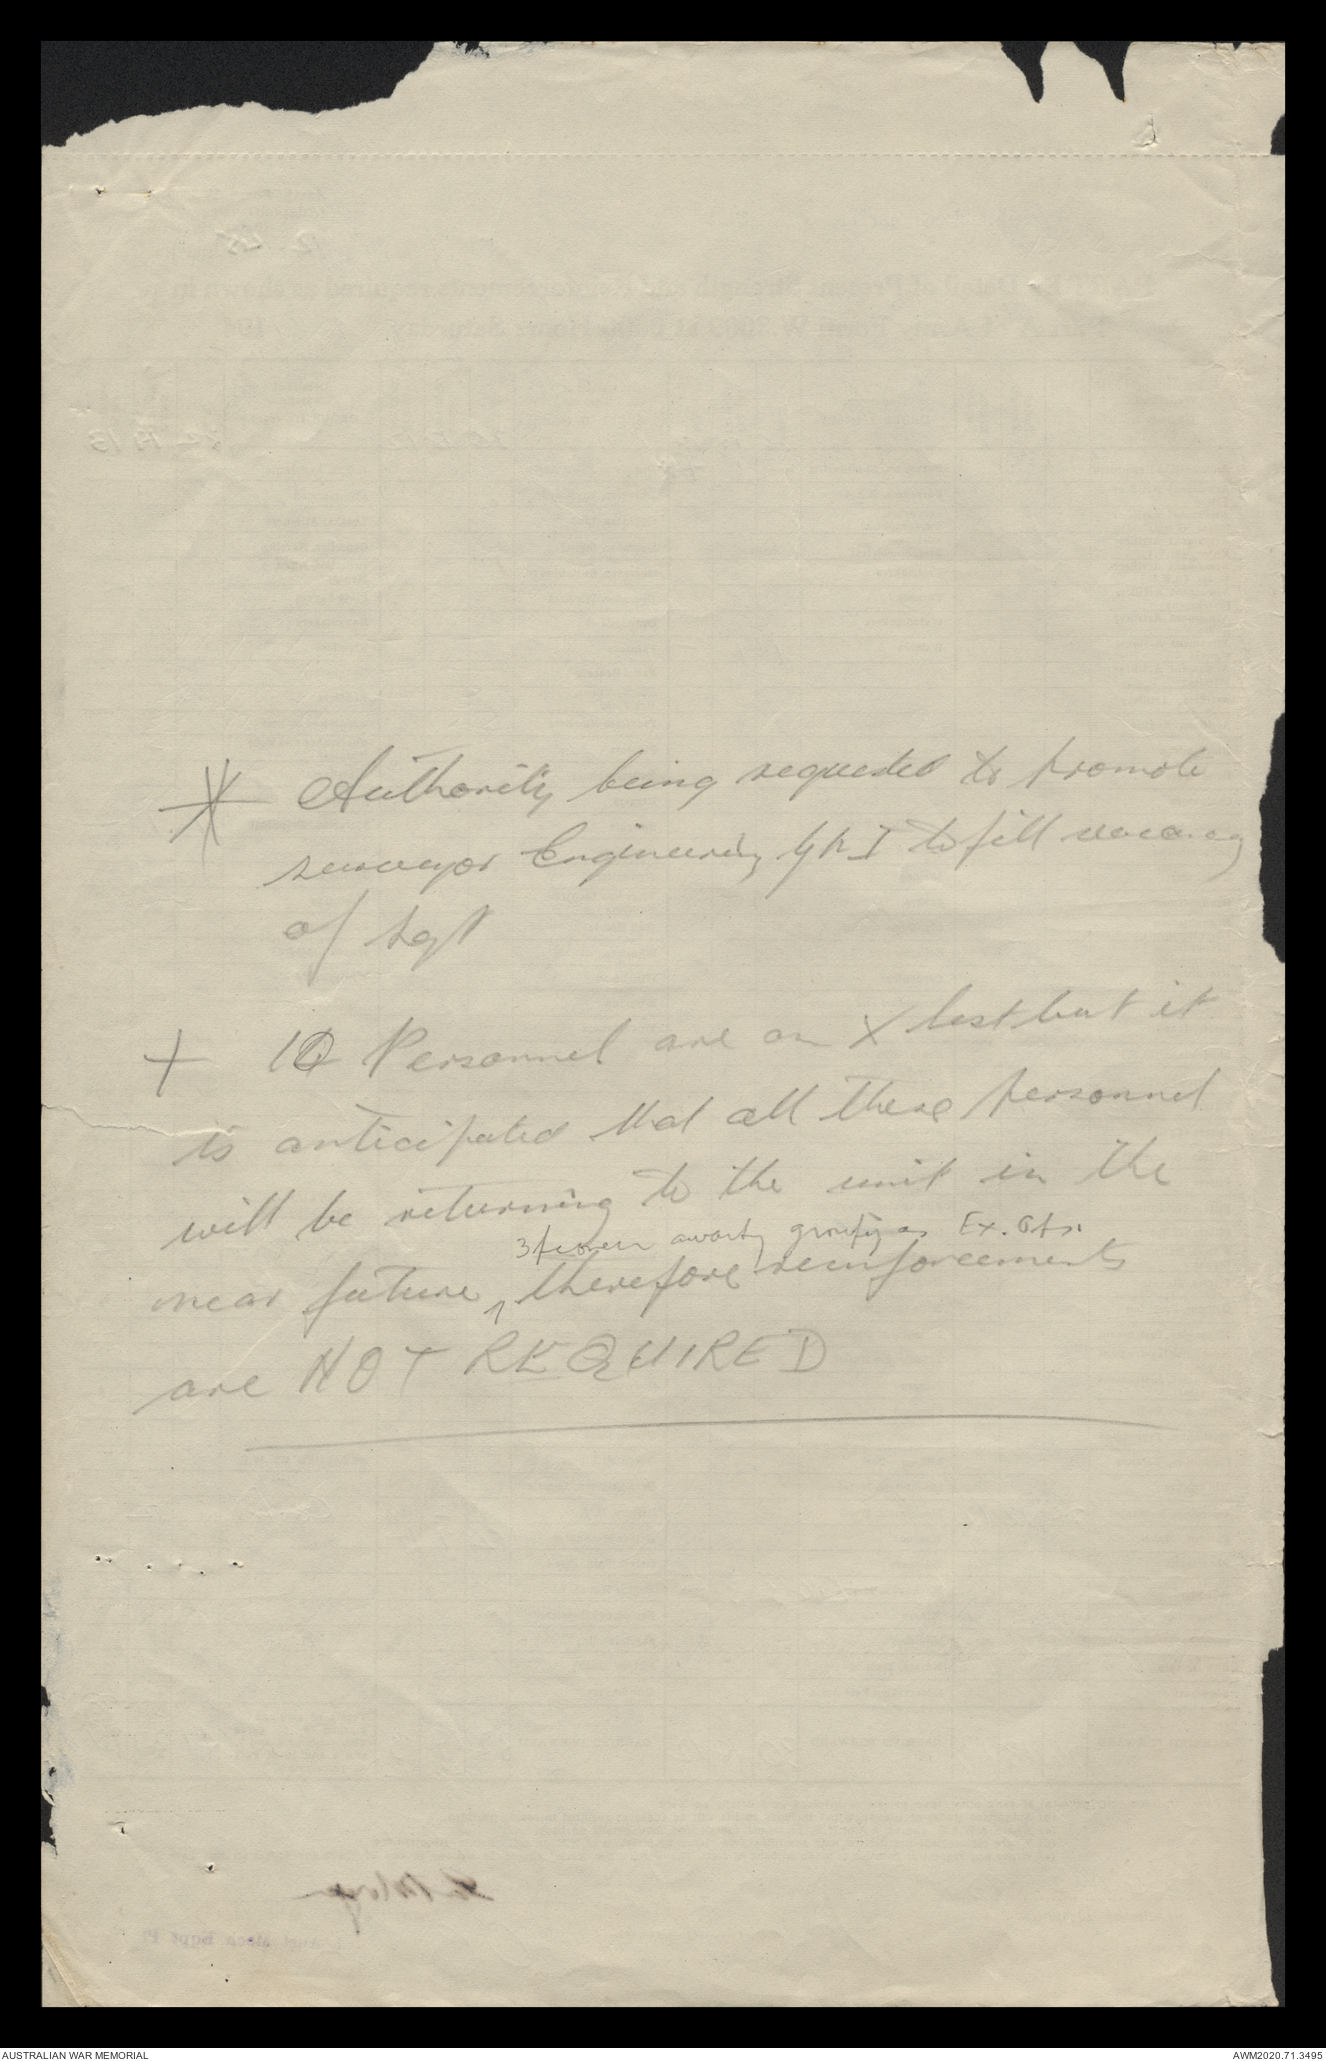 * Authority being requested to promote
surveyor Engineering Gp I to fill vacancy
of Sgt
+ 10 Personnel are on X list but it
is anticipated that all these personnel
will be returning to the unit in the
3 awaiting grouping as Ex. Opts.
near future, therefore reinforcements
are NOT REQUIRED
AUSTRALIAN WAR MEMORIAL
AWM2020.71.3495